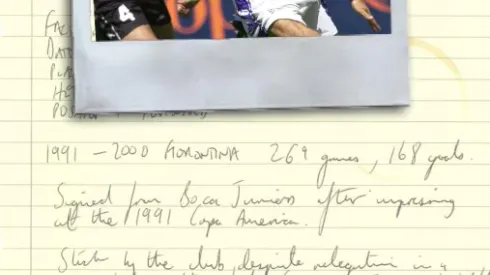 4
FAC
DATE
PLA
HE
POS
1991 – 2000 FIORENTINA 269 games, 168 goals.
Signed from Boca Juniors after impressing
at the 1991 Copa America.
Stuck by the club, despite relegation in a